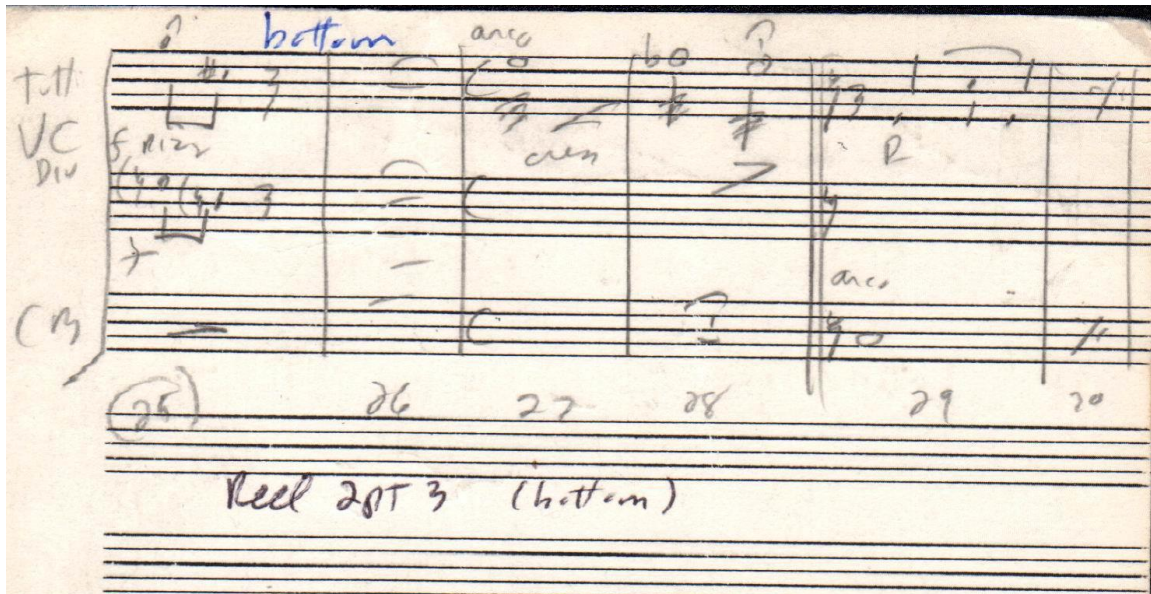 bottom arco
Tutti
VC
Div
f Pizz cresc P
f
arco
CB
25 26 27 28 29 30
Reel 2PT 3 (bottom)